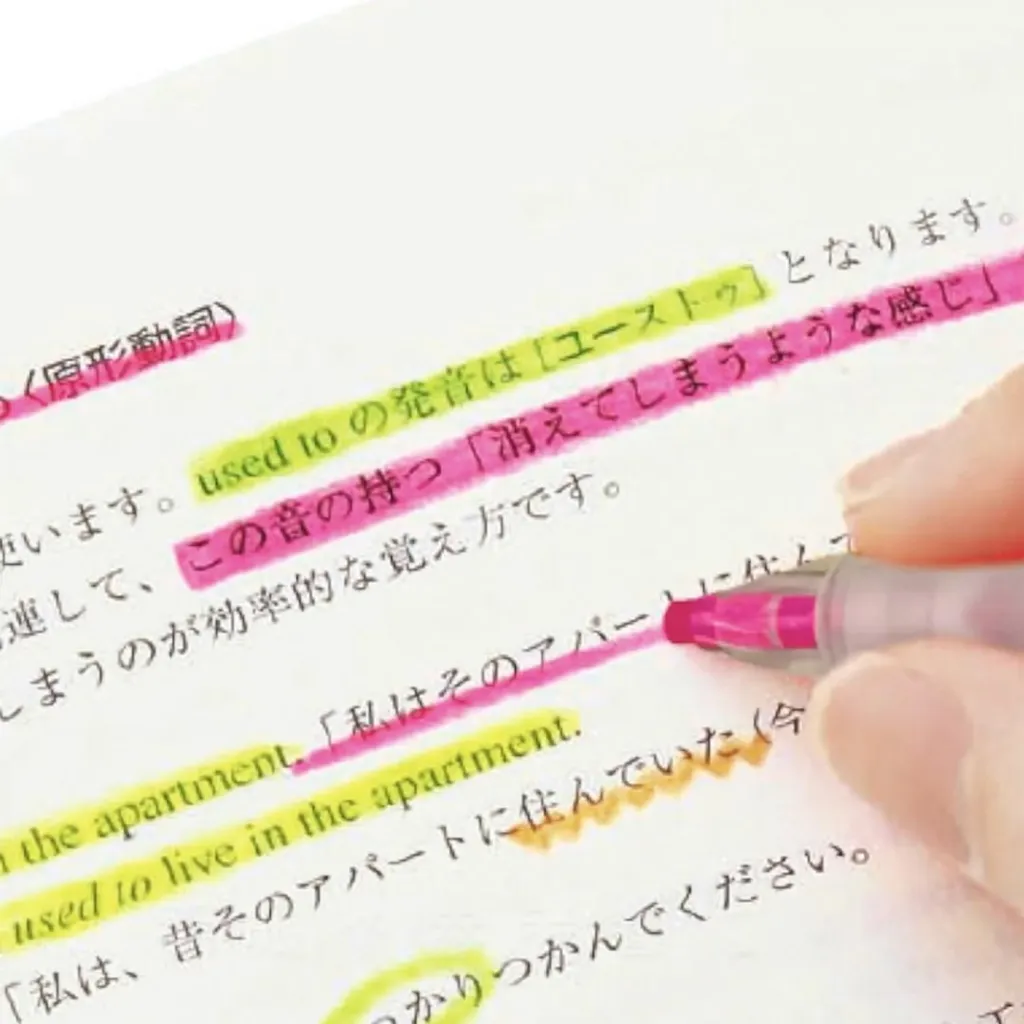 〈原形動詞〉
います。used to の発音は［ユーストゥ］となります。
連して、この音の持つ「消えてしまうような感じ」
しまうのが効率的な覚え方です。
the apartment.「私はそのアパートに住んで
used to live in the apartment.
「私は、昔そのアパートに住んでいた（今
かりつかんでください。